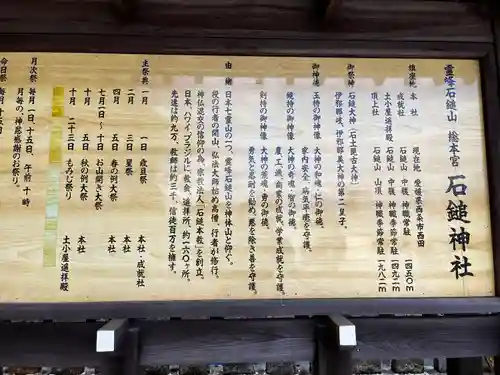 霊峰石鎚山 総本宮 石鎚神社
鎮座地 本社 現在地 愛媛県西条市西田
成就社 石鎚山 中腹 神職常駐 一四五〇m
土小屋遥拝殿 石鎚山 中腹 神職季節常駐 一四九二m
頂上社 石鎚山 山頂 神職季節常駐 一九八二m
御祭神 石鎚大神(石土毘古大神)
伊邪那岐、伊邪那美大神の第二皇子。
御神徳 玉持の御神像 大神の和魂、仁の御徳。
家内安全、病気平癒を守護。
鏡持の御神像 大神の奇魂、智の御徳。
農、工、漁、商業の成就、学業成就を守護。
剣持の御神像 大神の荒魂、勇の御徳。
勇気と忍耐を勧め、悪を除き善を守護。
由緒 日本七霊山の一つ、霊峰石鎚山を神体山と仰ぐ。
役の行者の開山、弘法大師始め高僧、行者が修行。
神仏混交の信仰の為、宗教法人「石鎚本教」を創立。
日本、ハワイ、ブラジルに教会、遥拝所、約一六〇ヶ所、
先達は約九万、教師は約三千、信徒百万を擁す。
主祭典 一月 一日 歳旦祭 本社・成就社
二月 三日 星祭 本社
四月 五日 春の例大祭 本社
七月一日〜十日 お山開き大祭
十月 五日 秋の例大祭 本社
十月 二十三日 もみじ祭り 土小屋遥拝殿
月次祭 毎月 一日、十五日 午前 十時
月毎の、神恩感謝のお祭り。
命日祭 毎月